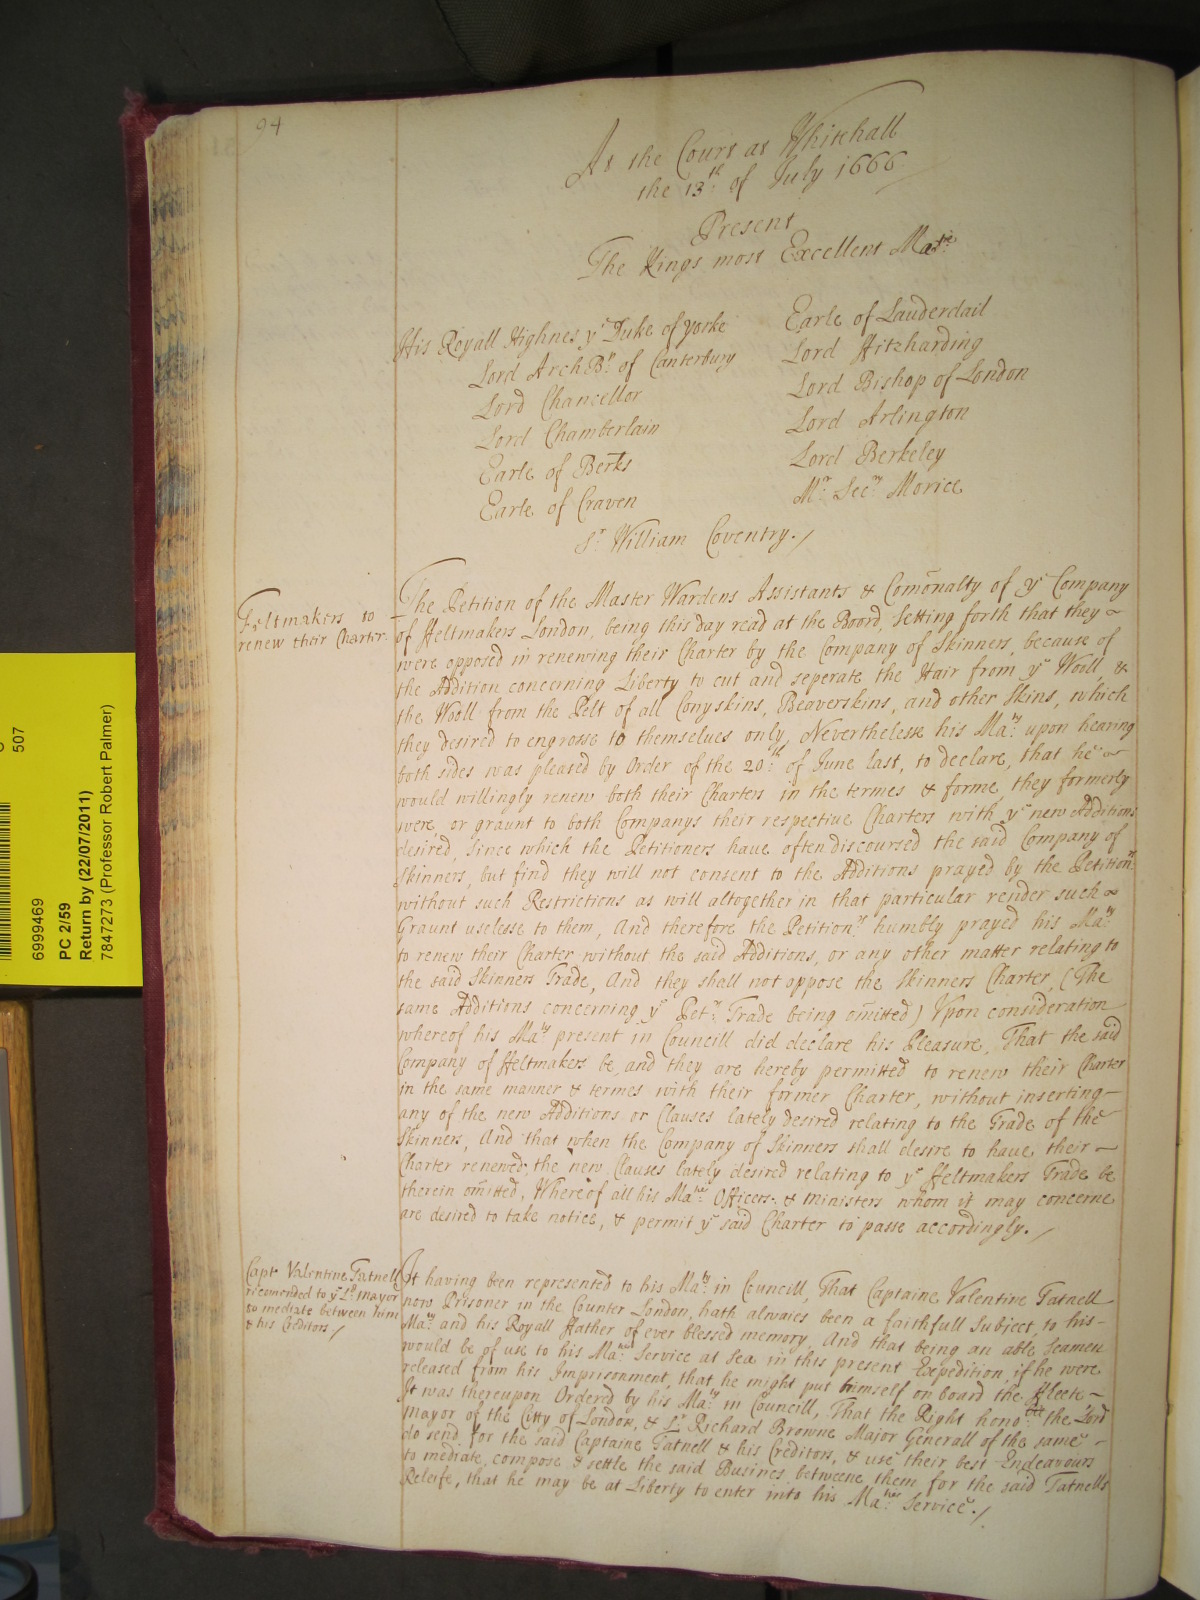 94
At the Court at Whitehall
the 13th of July 1666
Present
The Kings most Excellent Matie
His Royall Highnes ye Duke of Yorke
Lord ArchBp of Canterbury
Lord Chancellor
Lord Chamberlain
Earle of Berks
Earle of Craven
Earle of Lauderdail
Lord Fitzharding
Lord Bishop of London
Lord Arlington
Lord Berkeley
Mr Secry Morice
Sr William Coventry./
Feltmakers to
renew their Charter.
The Petition of the Master Wardens Assistants & Comonalty of ye Company
of ffeltmakers London, being this day read at the Boord, Setting forth that they
were opposed in renewing their Charter by the Company of Skinners, because of
the Addition concerning Liberty to cut and seperate the Hair from ye Wooll, &
the Wooll from the Pelt of all Conyskins, Beaverskins, and other Skins, which
they desired to engrosse to themselues only, Neverthelesse his Maty upon hearing
both sides was pleased by Order of the 20th of June last, to declare, that he
would willingly renew both their Charters in the termes & forme, they formerly
were, or graunt to both Companys their respective Charters with ye new Additions
desired, Since which the Petitioners have often discoursed the said Company of
Skinners, but find they will not consent to the Additions prayed by the Petitionrs
without such Restrictions as will altogether in that particular render such
Graunt uselesse to them, And therefore the Petitionrs humbly prayed his Maty
to renew their Charter without the said Additions, or any other matter relating to
the said Skinners Trade, And they shall not oppose the Skinners Charter, (The
same Additions concerning ye Petrs Trade being omitted) Vpon consideration
whereof his Maty present in Councill did declare his Pleasure, That the said
Company of ffeltmakers be, and they are hereby permitted to renew their Charter
in the same manner & termes with their former Charter, without inserting
any of the new Additions or Clauses lately desired relating to the Trade of the
Skinners, And that when the Company of Skinners shall desire to haue their
Charter renewed, the new Clauses lately desired relating to ye ffeltmakers Trade be
therein omitted, Whereof all his Mates Officers & Ministers whom it may concerne
are desired to take notice, & permit ye said Charter to passe accordingly./
Capt Valentine Tatnell
recomended to ye Ld Mayor
to mediate between him
& his Creditors/
It having been represented to his Maty in Councill, That Captaine Valentine Tatnell
now Prisoner in the Counter London, hath alwaies been a faithfull Subject, to his
Maty and his Royall ffather of ever blessed memory, And that being an able Seamen
would be of use to his Mates Service at Sea in this present Expedition, if he were
released from his Imprisonment, that he might put himself on board the Fleete
It was thereupon Ordered by his Maty in Councill, That the Right honoble the Lord
Mayor of the Citty of London, & Sr Richard Browne Major Generall of the same
do send for the said Captaine Tatnell & his Creditors, & use their best Endeavours
to mediate, compose & settle the said Busines betweene them for the said Tatnells
Releife, that he may be at Liberty to enter into his Mates Service./
507
6999469
PC 2/59
Return by (22/07/2011)
7847273 (Professor Robert Palmer)